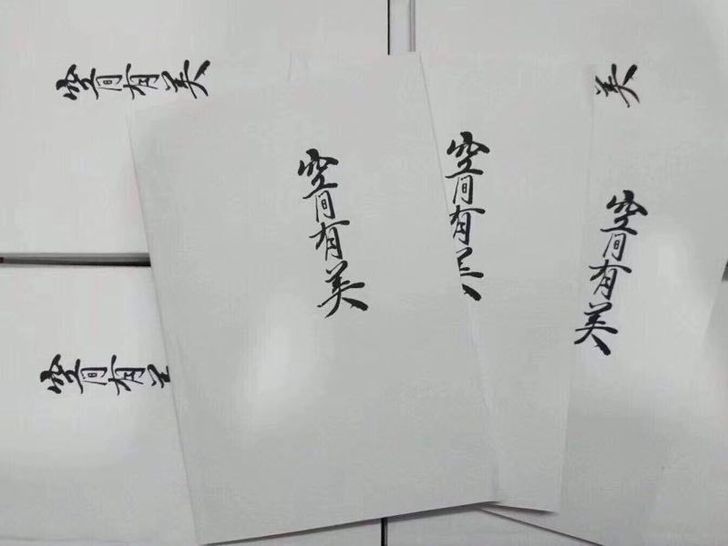 空间有美
美
空间有美
空间有美
空间有美
空间有美